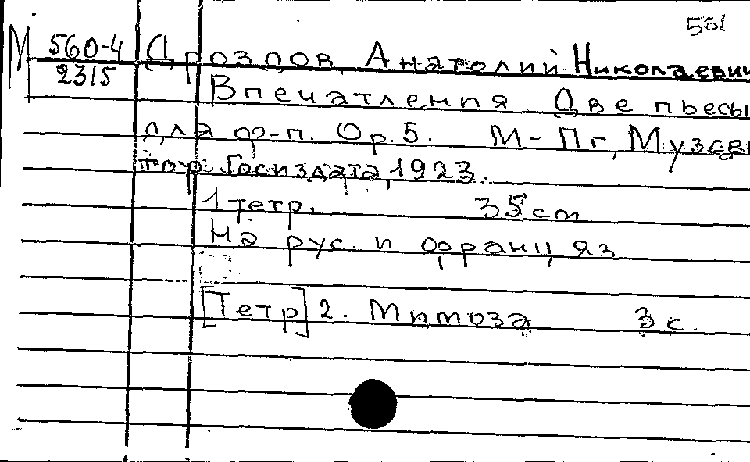 501
М 560-4 Дроздов, Анатолий Николаевич
2315
Впечатления. Две пьесы
для ф-п. Ор. 5. М-Пг, Музсек
тор Госиздата, 1923.
1 тетр. 35 см
На рус. и франц яз
[Тетр] 2. Мимоза 3 с.